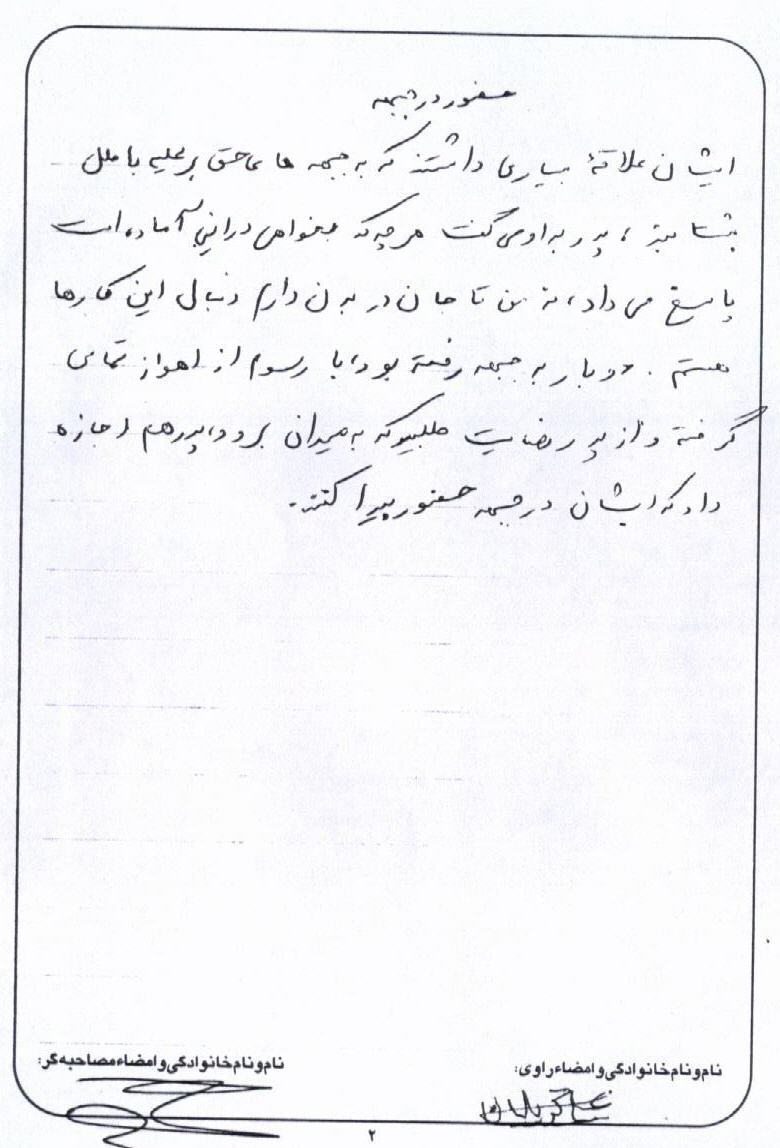 حضور در جبهه
ایشان علاقهٔ بسیاری داشتند که به جبهه های حق بر علیه باطل
بشتابند ، پدر به او می گفت هر چه که بخواهی در اینجا آماده است
پاسخ می داد ، نه من تا جان در بدن دارم دنبال این کارها
هستم . دو بار به جبهه رفته بود ، بار سوم از اهواز تماس
گرفته و از پدر رضایت طلبید که به میدان برود ، پدر هم اجازه
داد که ایشان در جبهه حضور پیدا کنند .
نام و نام خانوادگی و امضاء راوی:
نام و نام خانوادگی و امضاء مصاحبه گر:
۲